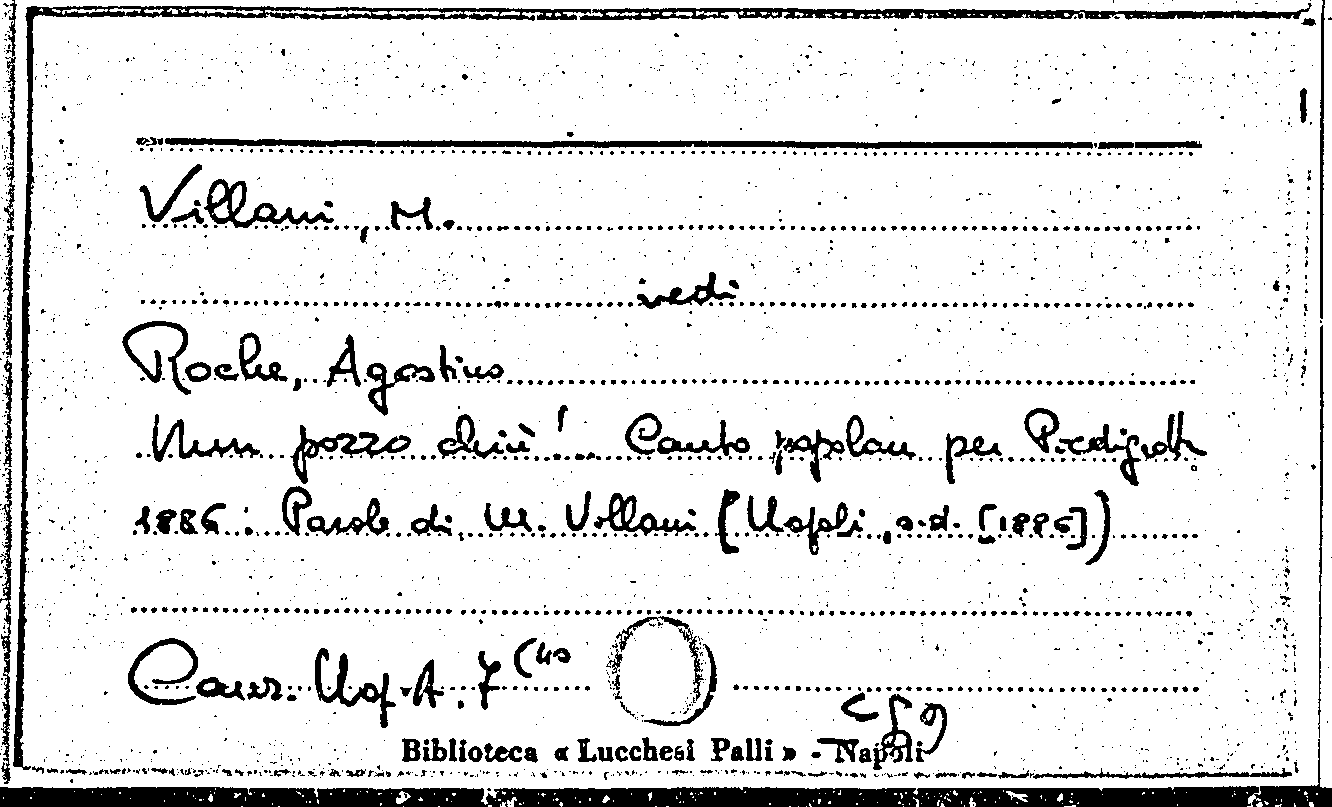 Villani, M.
vedi
Roche, Agostino
Nun pozzo chiù!... Canto popolare per Piedigrotta
1886. Parole di M. Villani (Napoli, s.d. [1886])
Canz. Nap. A. 7 (40
Biblioteca « Lucchesi Palli » - Napoli